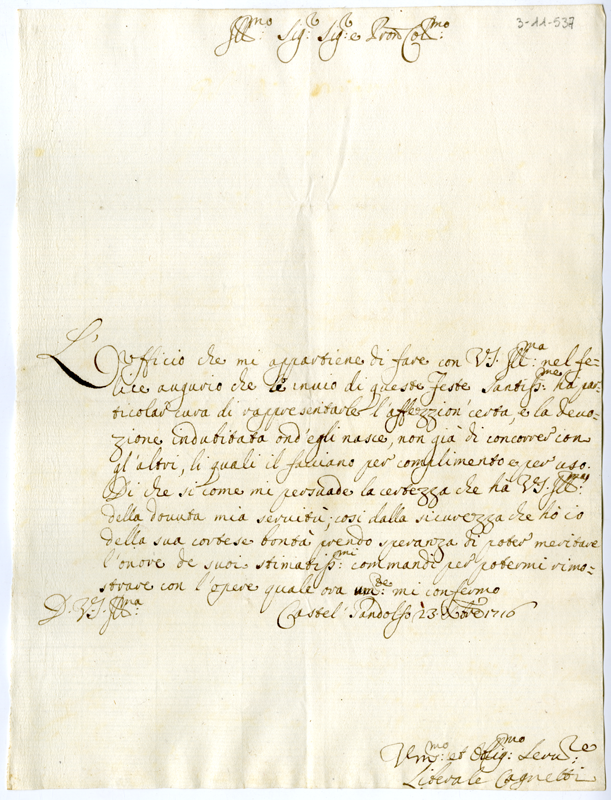 3-11-537
Ill:mo Sig:r Sig:r e Pron Col:mo
L'Vfficio che mi appartiene di fare con V.S. Ill:ma nel fe-
lice augurio che le inuio di queste feste Santiss:me hà par-
ticolar cura di rappresentarle l'affezzion' certa, e la deuo-
zione indubitata ond'egli nasce, non già di concorrer con
gl'altri, li quali il facciano per complimento e per uso.
Di che si come mi persuade la certezza che hà V.S. Ill:ma
della douuta mia seruitù; cosi dalla sicurezza che hò io
della sua cortese bontà prendo speranza di poter meritare
l'onore de suoi stimatiss:mi commandi per potermi rimo-
strare con l'opere quale ora um:te mi confermo
D. V.S. Ill:ma Castel' Gandolfo 23 Xbre 1716
Vm:mo et Oblig:mo Seru:re
Liberale Cagnetti